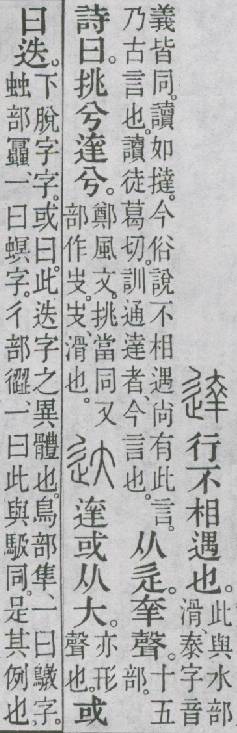 行不相遇也。
此與水部
滑泰字音
義皆同。讀如撻。今俗說不相遇尚有此言。
乃古言也。讀徒葛切。訓通達者、今言也。
从辵。羍聲。
十五
部。
詩曰。挑兮達兮。
鄭風文。挑當同又
部作𠬢。𠬢滑也。
達或从大。
亦形
聲也。
或
曰迭。
下脫字字。或曰。此迭字之異體也。鳥部隼、一曰鷻字。
䖵部一曰螟字。彳部、一曰此與馺同。是其例也。